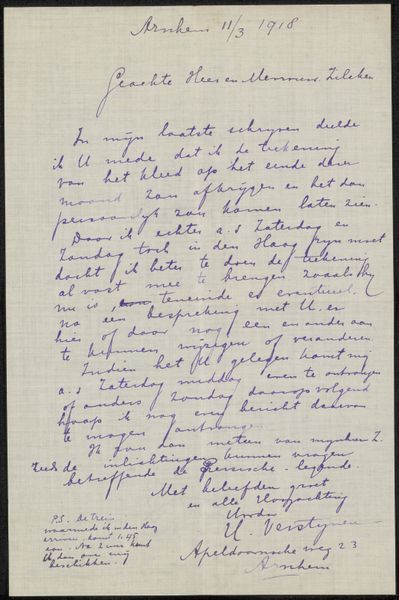 Arnhem 11/3 1918
Geachte Heer en Mevrouw Zilcken
In mijn laatste schrijven deelde
ik U mede, dat ik de teekening
van het kleed op het einde dezer
maand zou afkrijgen en het dan
persoonlijk zou komen laten zien.
Daar ik echter a.s Zaterdag en
Zondag toch in den Haag zijn moet
dacht ik beter te doen de teekening
alvast mee te brengen zooals hij
nu is, teneinde er eventueel.
na een bespreking met U. er
hier of daar nog een en ander aan
te kunnen wijzigen of veranderen
Indien het U gelegen komt mij
a.s Zaterdag middag even te ontvangen
of anders Zondag daaropvolgend
hoop ik nog even bericht daarvan
te mogen ontvangen.
Ik zou dan meteen van mijnheer Z.
de inlichtingen kunnen vragen
betreffende de Persische legende.
Met beleefden groet
en alle Hoogachting
U. Verstijnen
Apeldoornsche weg 23
Arnhem
P.S. de trein
waarmede ik in den Haag
arriveer, komt 1.45
aan. Na 2 uur kunt
U dan over mij
beschikken.